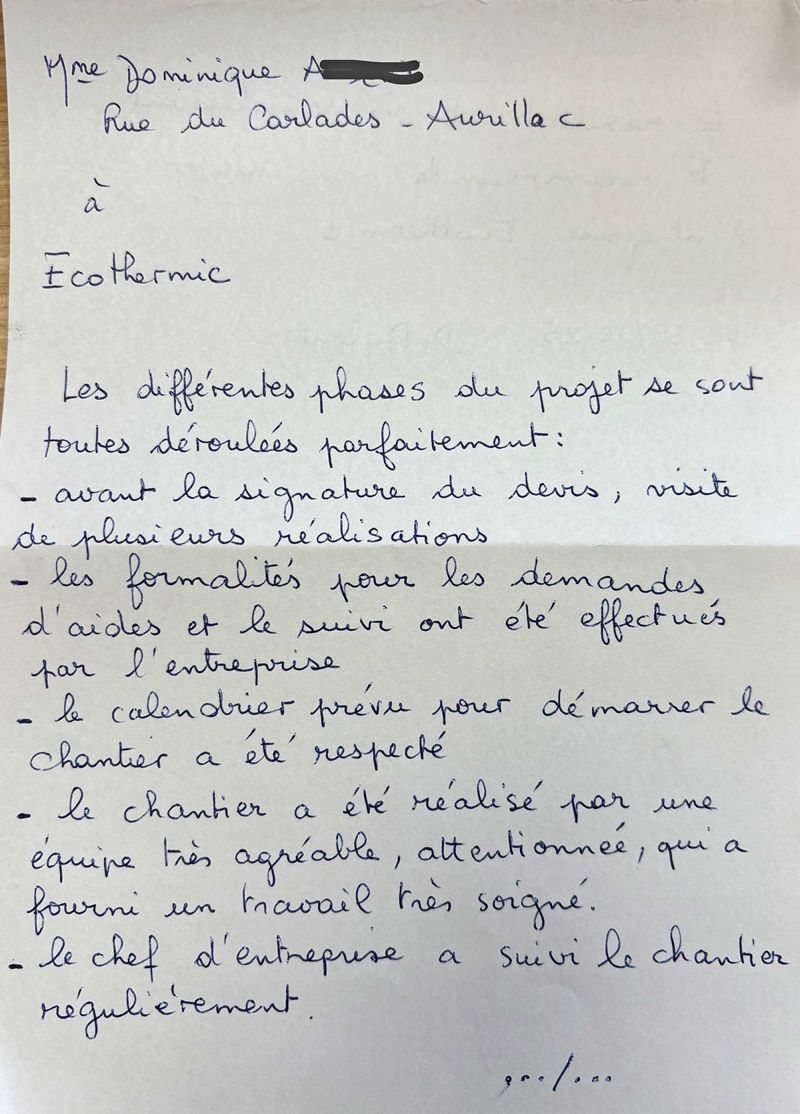 Mme Dominique A
Rue du Carlades - Aurillac
à
Ecothermic
Les différentes phases du projet se sont
toutes déroulées parfaitement :
- avant la signature du devis, visite
de plusieurs réalisations
- les formalités pour les demandes
d'aides et le suivi ont été effectués
par l'entreprise
- le calendrier prévu pour démarrer le
chantier a été respecté
- le chantier a été réalisé par une
équipe très agréable, attentionnée, qui a
fourni un travail très soigné.
- le chef d'entreprise a suivi le chantier
régulièrement.
.../...